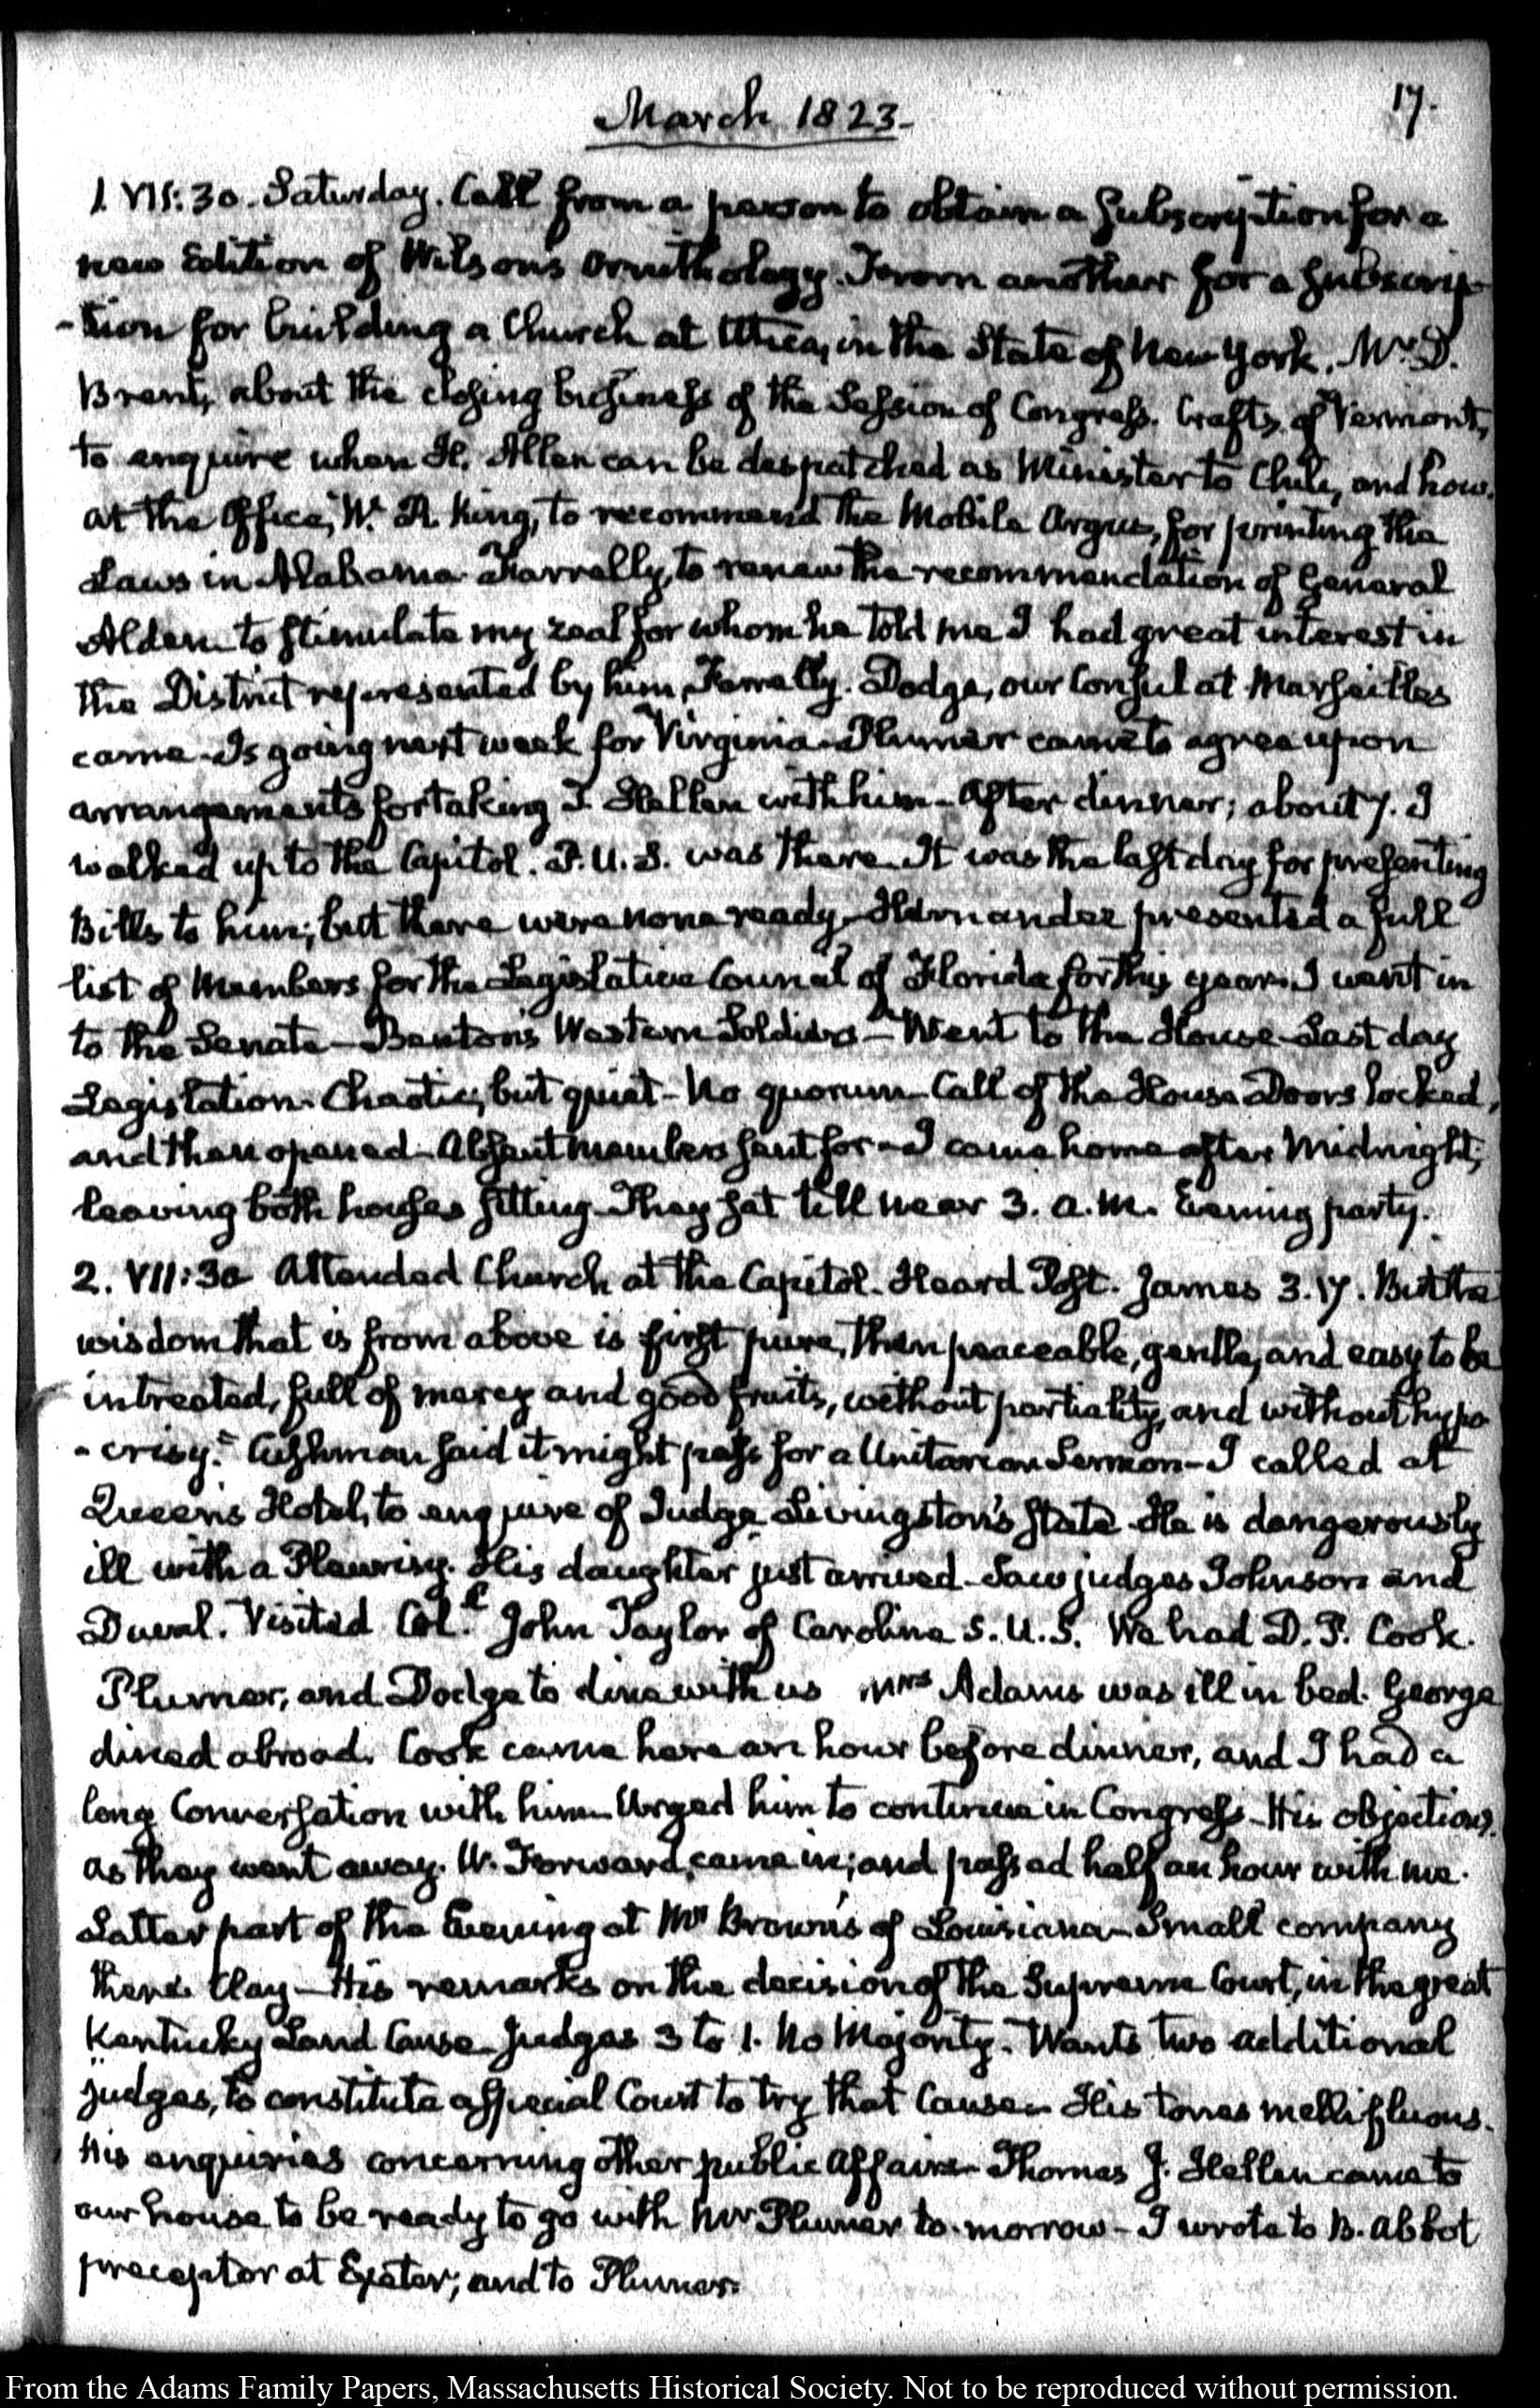 March 1823.
17.
1. VII:30. Saturday. Call from a person to obtain a subscription for a
new Edition of Wilson's Ornithology. From another for a subscrip-
-tion for building a Church at Utica, in the State of New York. Mr. D.
Brent, about the closing business of the Session of Congress. Crafts, of Vermont,
to enquire when H. Allen can be despatched as Minister to Chili, and how.
at the Office, W. R. King, to recommend the Mobile Argus, for printing the
Laws in Alabama. Farrelly, to renew the recommendation of General
Alden to stimulate my zeal for whom he told me I had great interest in
the District represented by him, Farrelly. Dodge, our Consul at Marseilles
came. Is going next week for Virginia. Plumer came to agree upon
arrangements for taking T. Hellen with him. After dinner; about 7. I
walked up to the Capitol. P.U.S. was there. It was the last day for presenting
Bills to him; but there were none ready. Hernandez presented a full
list of Members for the Legislative Council of Florida for this year. I went in
to the Senate—Benton's Western Soldiers—Went to the House—Last day
Legislation. Chaotic; but quiet—No quorum—Call of the House Doors locked,
and then opened—Absent members sent for—I came home after Midnight;
leaving both houses sitting. They sat till near 3. a.m. Evening party.
2. VII:30 Attended Church at the Capitol. Heard Post. James 3.17. "But the
wisdom that is from above is first pure, then peaceable, gentle, and easy to be
intreated, full of mercy and good fruits, without partiality, and without hypo
-crisy." Cushman said it might pass for a Unitarian Sermon—I called at
Queen's Hotel, to enquire of Judge Livingston's state. He is dangerously
ill with a Pleurisy. His daughter just arrived. Saw judges Johnson and
Duval. Visited Coll. John Taylor of Carolina S.U.S. We had D. P. Cook.
Plumer, and Dodge to dine with us Mrs Adams was ill in bed. George
dined abroad. Cook came here an hour before dinner, and I had a
long Conversation with him—Urged him to continue in Congress—His objections.
as they went away. W. Forward, came in; and passed half an hour with me.
Latter part of the Evening at Mr Brown's of Louisiana—Small company
there. Clay—His remarks on the decision of the Supreme Court, in the great
Kentucky Land Cause. Judges 3 to 1. No Majority. Wants two additional
judges, to constitute a special Court to try that Cause. His tones mellifluous.
His enquiries concerning other public Affairs—Thomas J. Hellen came to
our house to be ready to go with Mr Plumer to-morrow—I wrote to B. Abbot
preceptor at Exeter; and to Plumer.
From the Adams Family Papers, Massachusetts Historical Society. Not to be reproduced without permission.